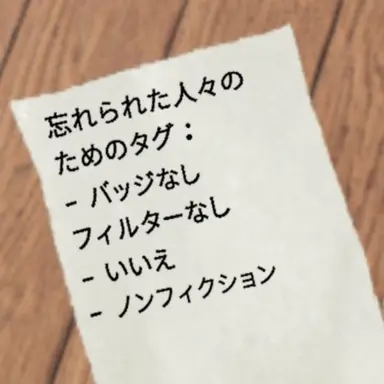 忘れられた人々の
ためのタグ：
- バッジなし
フィルターなし
- いいえ
- ノンフィクション